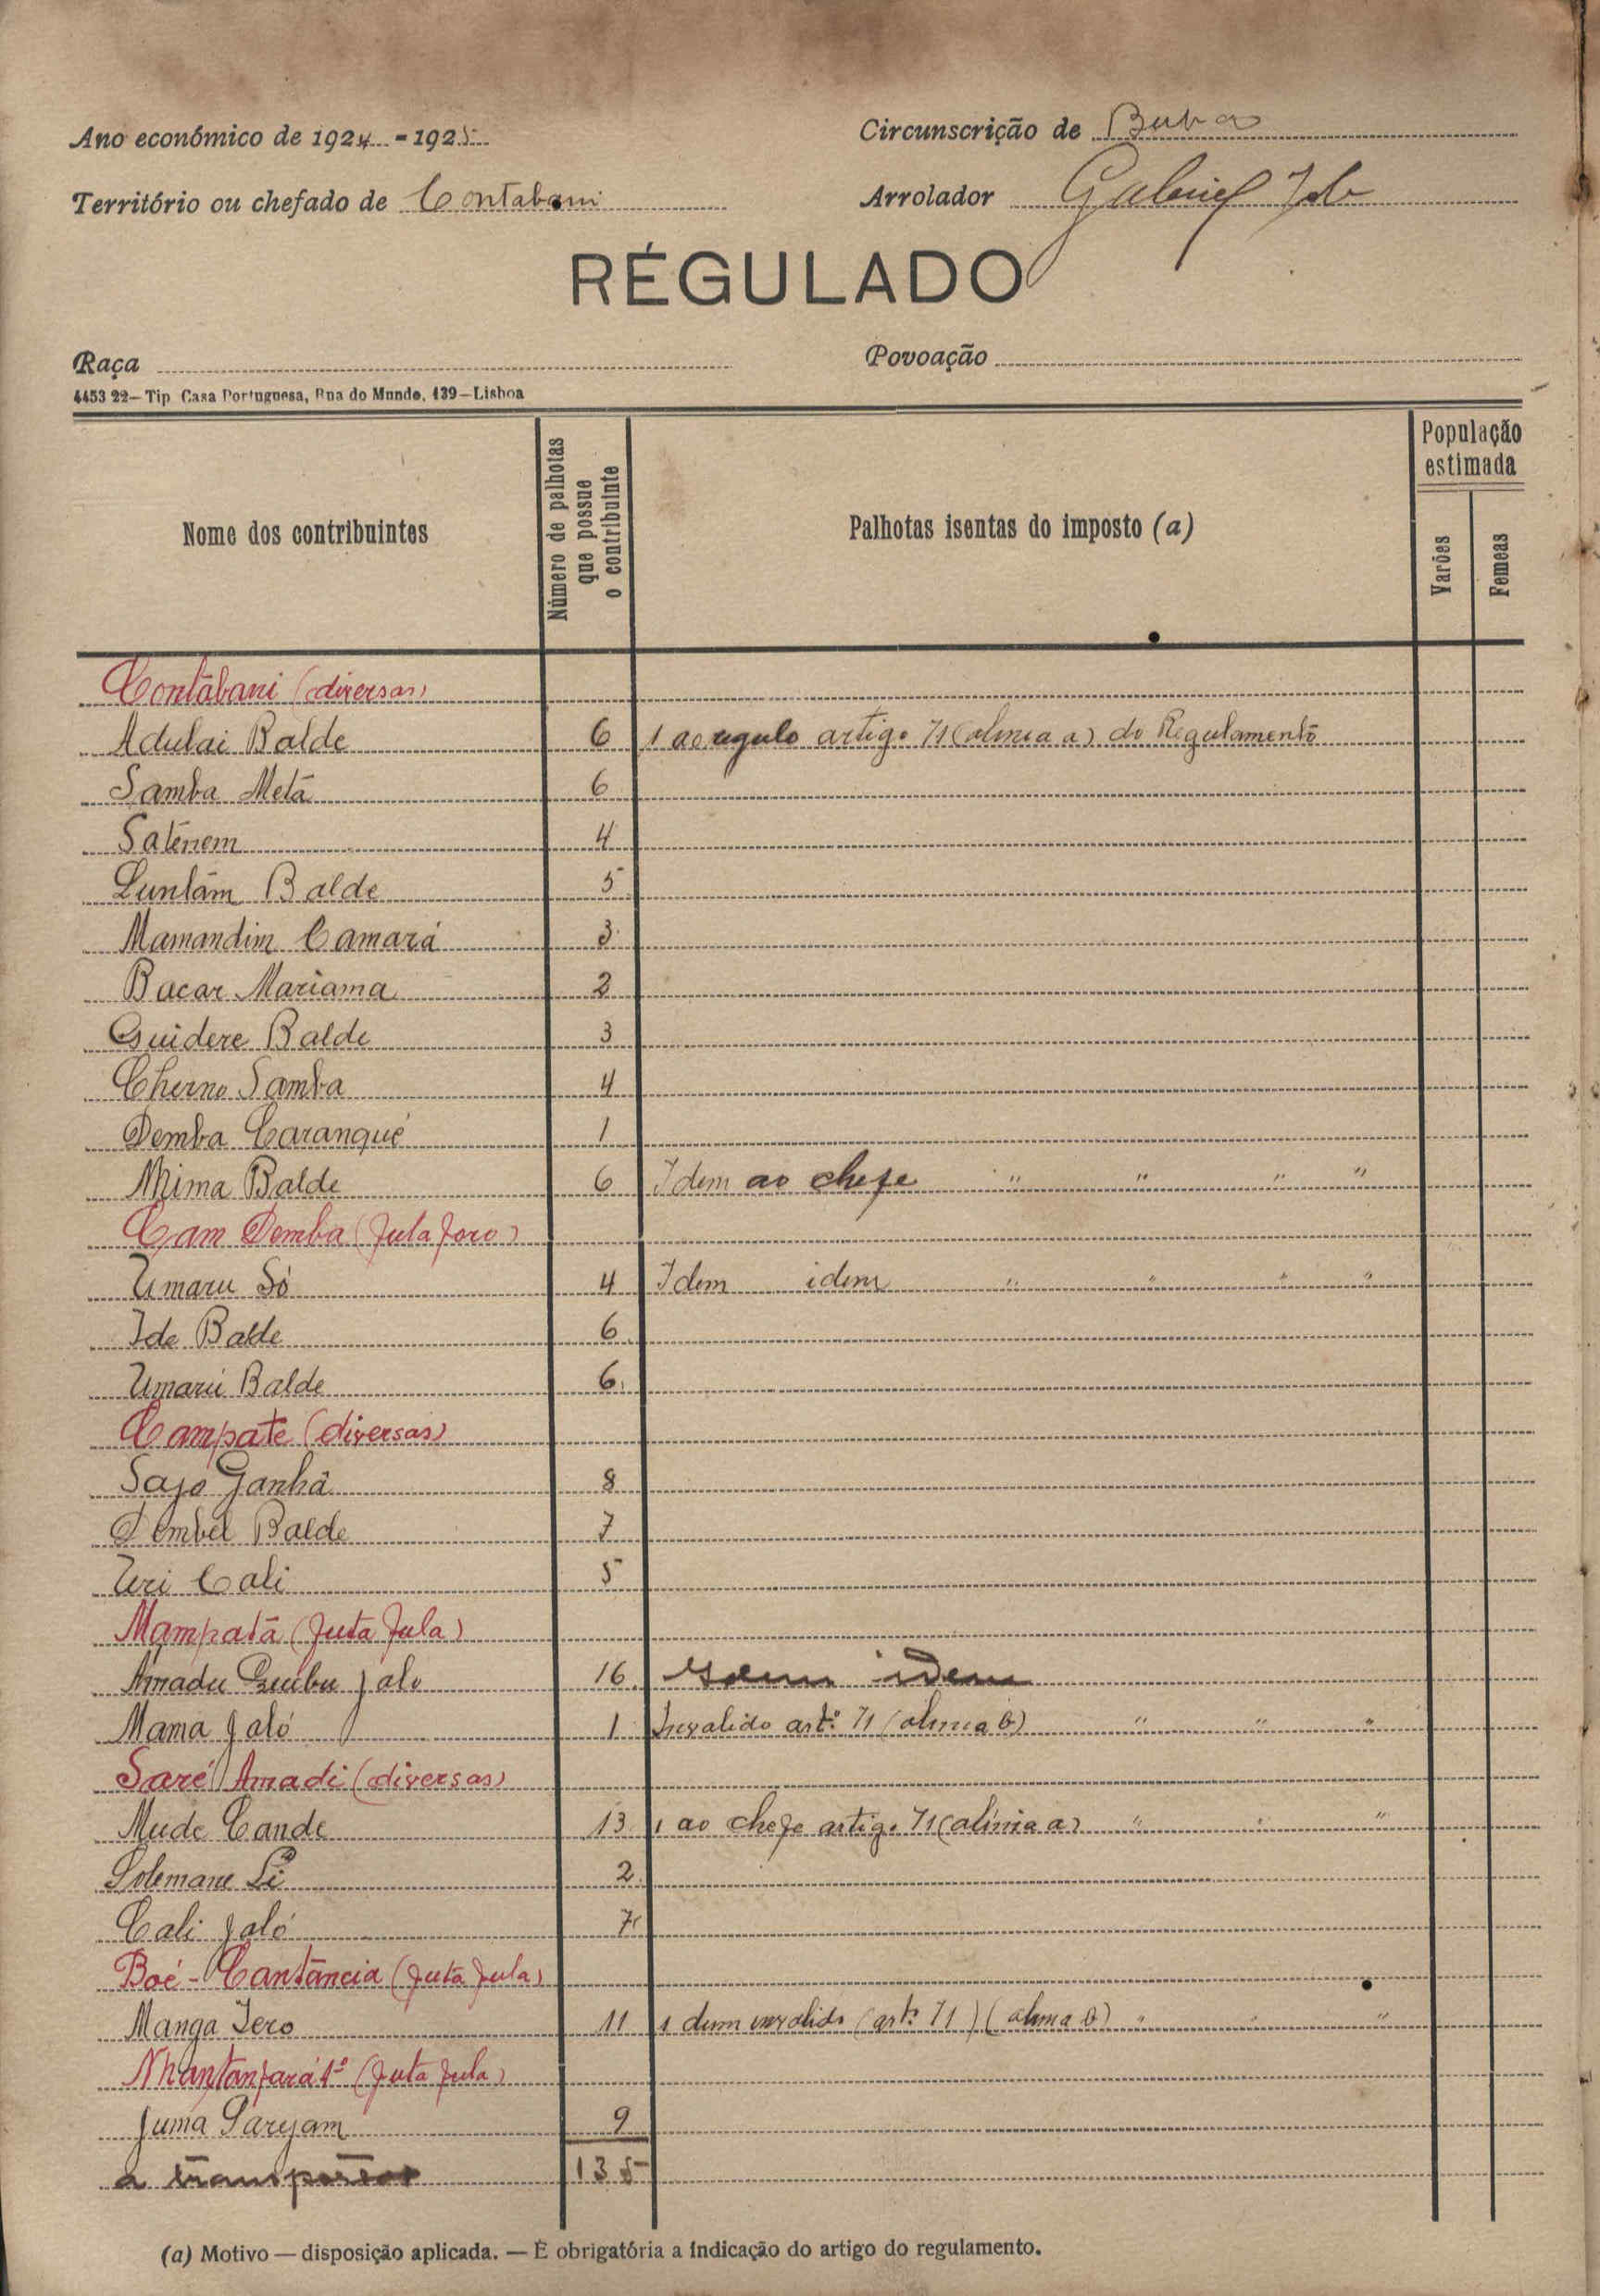 Ano económico de 1924 - 1925
Circunscrição de Buba
Território ou chefado de Contabani
Arrolador Gabriel
RÉGULADO
Raça
Povoação
4453 22—Tip Casa Portuguesa, Rua do Mundo, 139—Lisboa
Nome dos contribuintes
Número de palhotas que possue o contribuinte
Palhotas isentas do imposto (a)
População estimada
Varões
Femeas
Contabani (diversas)
Adulai Balde 6 1 ao regulo artigo 71 (alinea a) do Regulamento
Samba Metá 6
Saténem 4
Luntâm Balde 5
Mamandim Camará 3
Bacar Mariama 2
Guidere Balde 3
Cherno Samba 4
Demba Caranqué 1
Nhima Balde 6 Idem ao chefe " " " "
Cam Demba (fula foro)
Umaru Só 4 Idem idem " " " "
Ide Balde 6
Umarú Balde 6
Campate (diversas)
Sajo Ganhâ 8
Dembel Balde 7
Uri Cali 5
Mampatá (futa fula)
Amadu Guibu Jalo 16 Idem idem
Mama Jaló 1 Invalido artº 71 (alinea b) " " "
Saré Amadi (diversas)
Mude Cande 13 1 ao chefe artigo 71 (alinea a) " " "
Solemane Li 2
Cali Jaló 7
Boé-Cantância (futa fula)
Manga Jero 11 1 dem invalido (artº 71) (alinea b) " " "
Nhantanfará 1º (futa fula)
Juma Saryam 9
a transportar 135
(a) Motivo — disposição aplicada. — É obrigatória a indicação do artigo do regulamento.